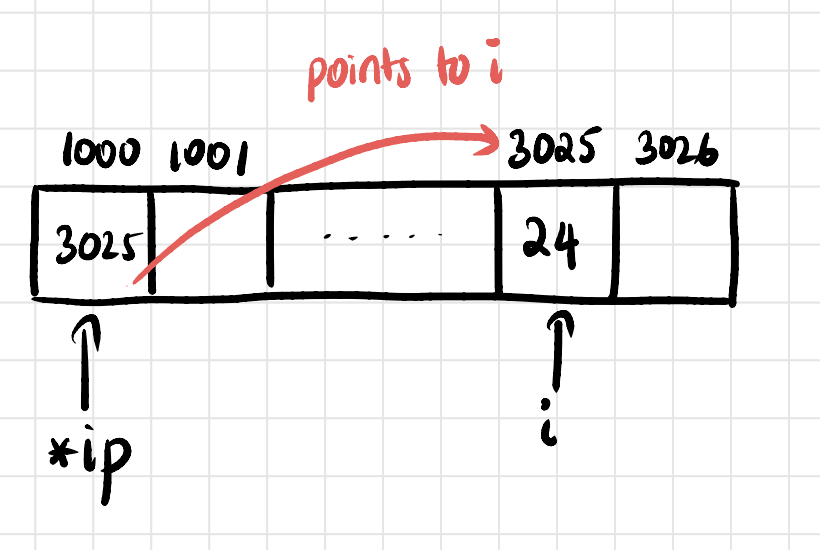 points to i
1000 1001 3025 3026
3025 ..... 24
*ip i